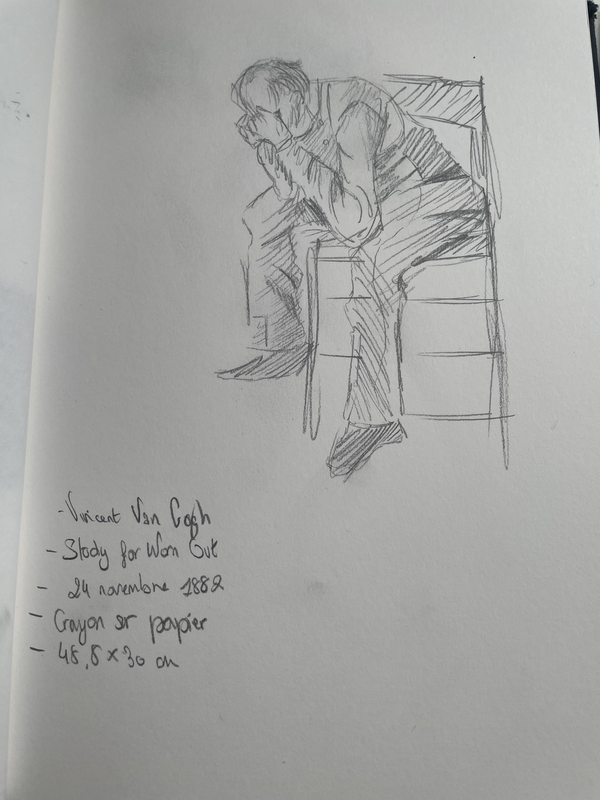 - Vincent Van Gogh
- Study for Worn Out
- 24 novembre 1882
- Crayon sur papier
- 48,8 x 30 cm